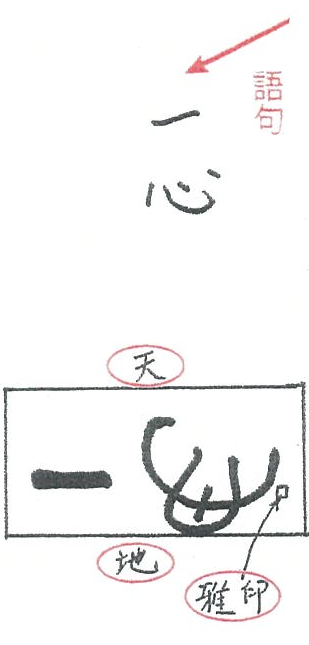 語句
一
心
天
一
地
雅印